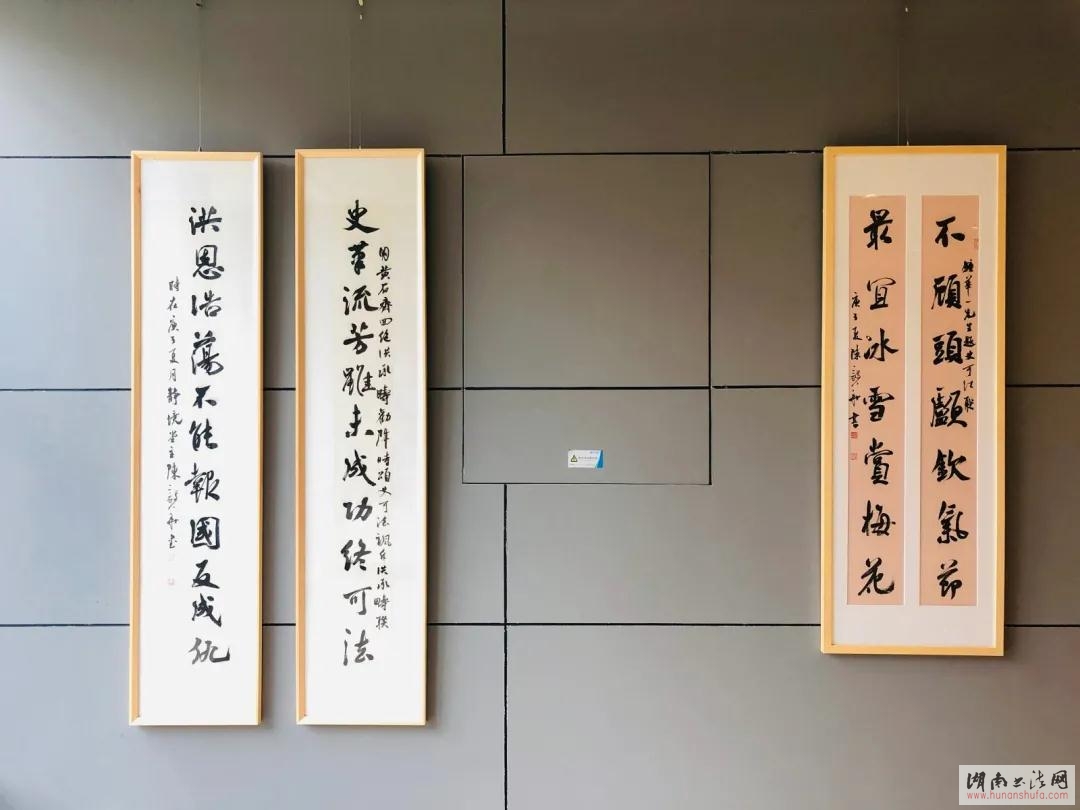 不頭顱欽氣節
錄華一先生題史可法聯
最宜冰雪賞梅花
庚子夏陳書
史筆流芳雖未成功終可法
用黃石齋回絕洪承疇勸降時頌史可法諷斥洪承疇撰
洪恩浩蕩不能報國反成仇
時在庚子夏月靜堂主陳書
湖南书法网
www.hunanshufa.com